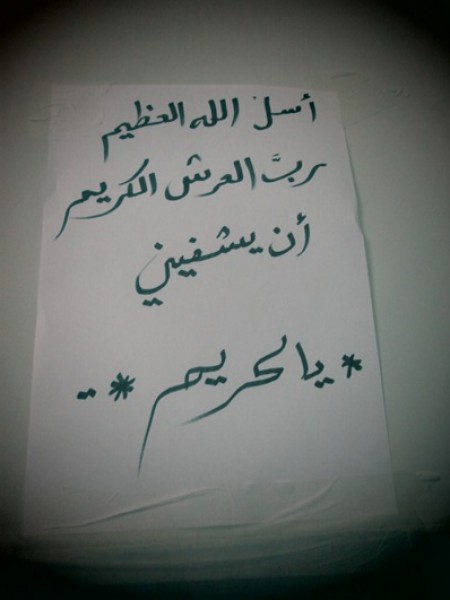 أسل الله العظيم
ربَّ العرش الكريم
أن يشفيني
* يا كريم * ..